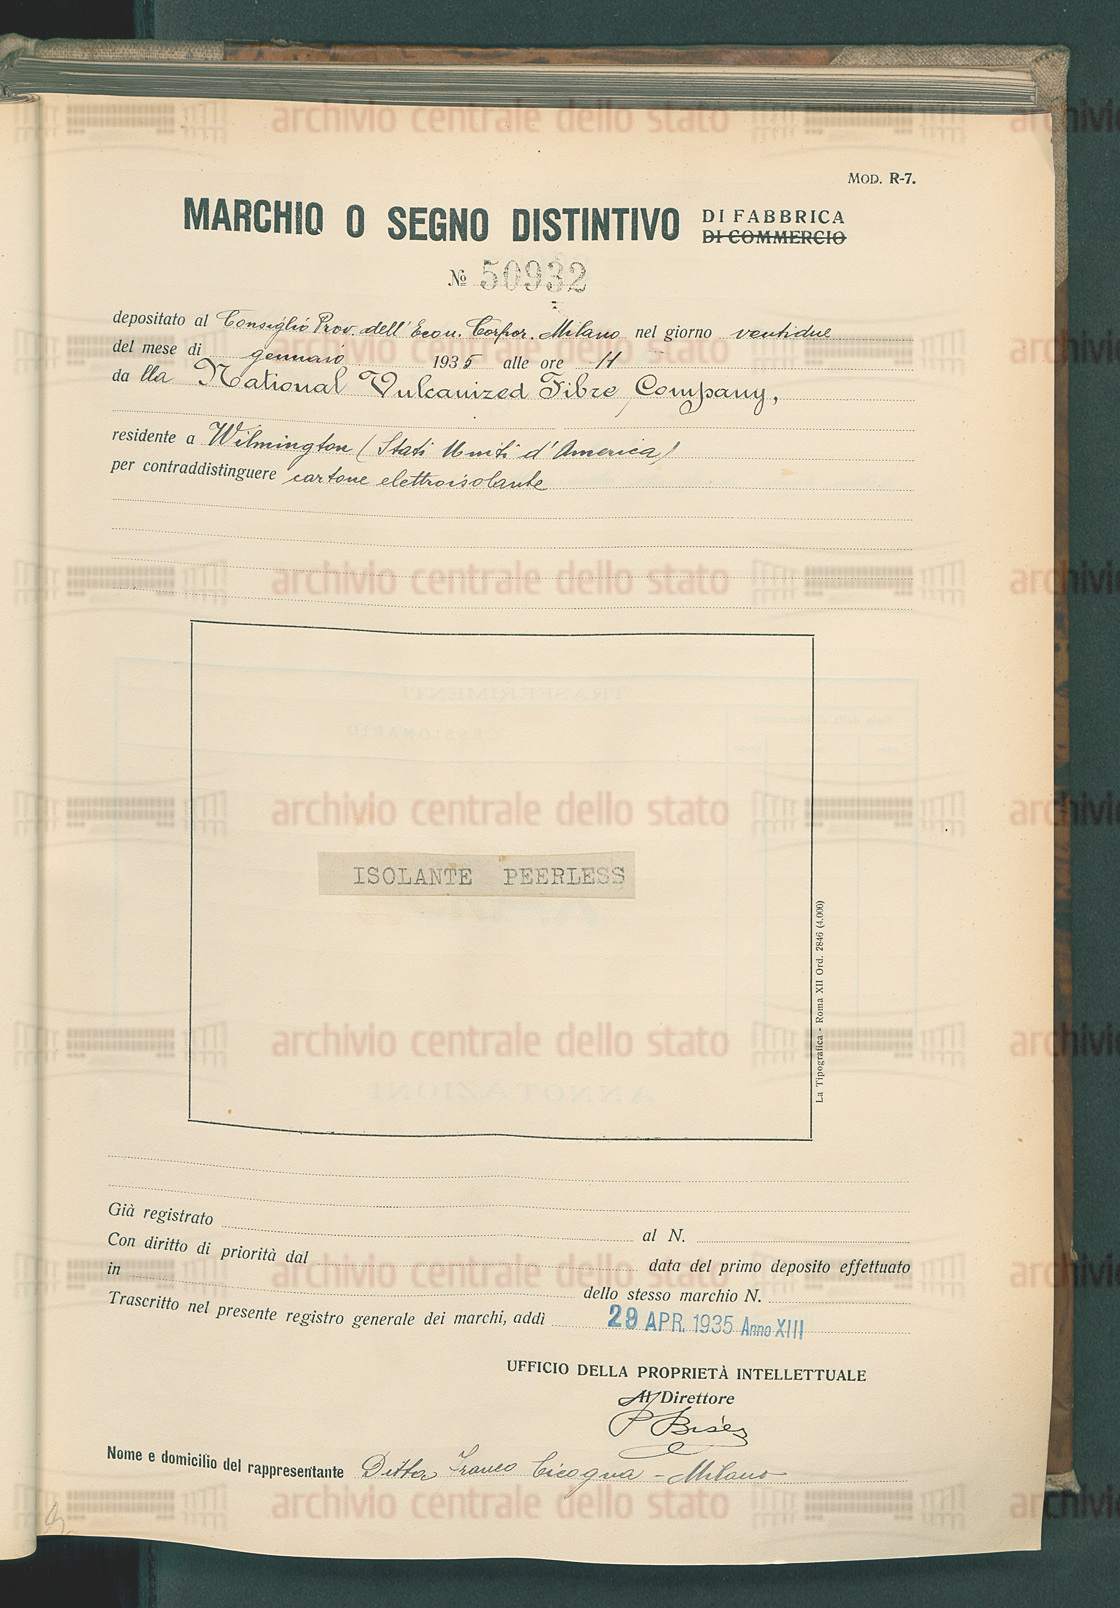 MOD. R-7.
MARCHIO O SEGNO DISTINTIVO DI FABBRICA
DI COMMERCIO
No 50932
depositato al Consiglio Prov. dell'Econ. Corpor. Milano nel giorno ventidue
del mese di gennaio 1935 alle ore 11
da lla National Vulcanized Fibre Company,
residente a Wilmington (Stati Uniti d'America)
per contraddistinguere cartone elettroisolante
ISOLANTE PEERLESS
La Tipografica - Roma XII Ord. 2846 (4.000)
Già registrato al N.
Con diritto di priorità dal data del primo deposito effettuato
in dello stesso marchio N.
Trascritto nel presente registro generale dei marchi, addì 29 APR. 1935 Anno XIII
UFFICIO DELLA PROPRIETÀ INTELLETTUALE
Il Direttore
Nome e domicilio del rappresentante Ditta Franco Cicogna - Milano
archivio centrale dello stato